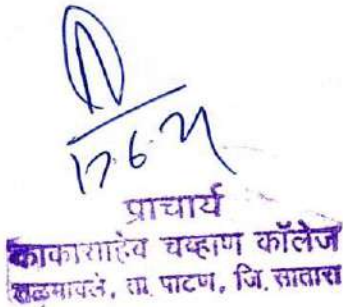 17.6.21
प्राचार्य
काकासाहेब चव्हाण कॉलेज
तळमावले, ता. पाटण, जि. सातारा